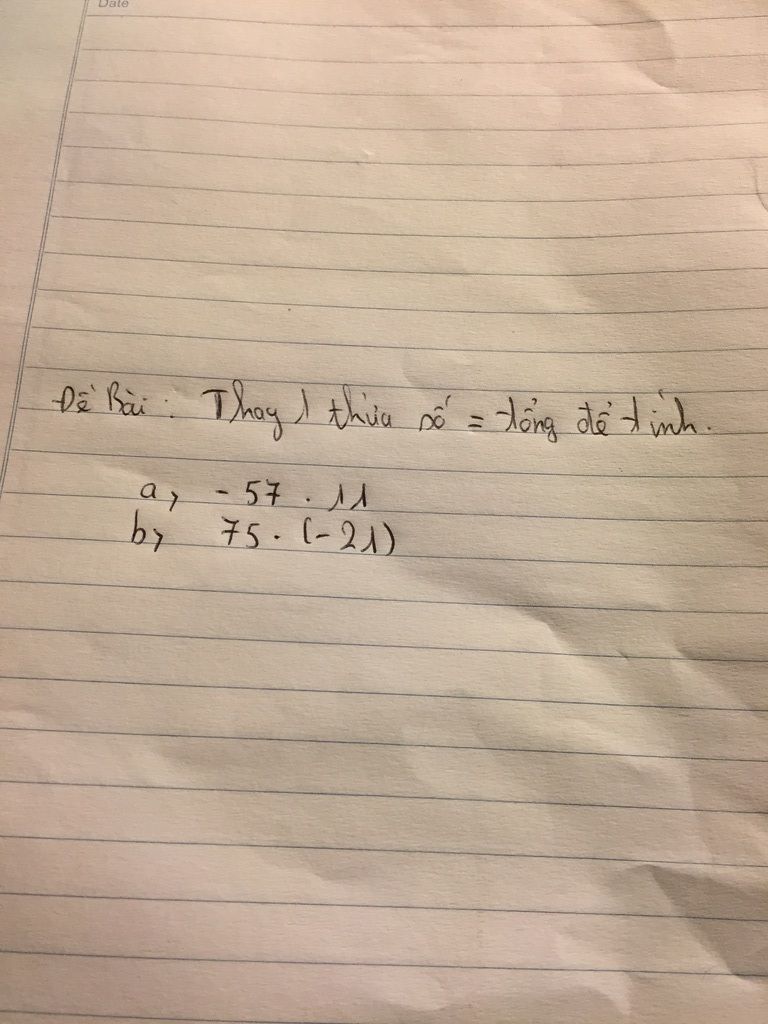 Date
Đề Bài : Thay 1 thừa số = tổng để tính.
a, - 57 . 11
b, 75 . (-21)